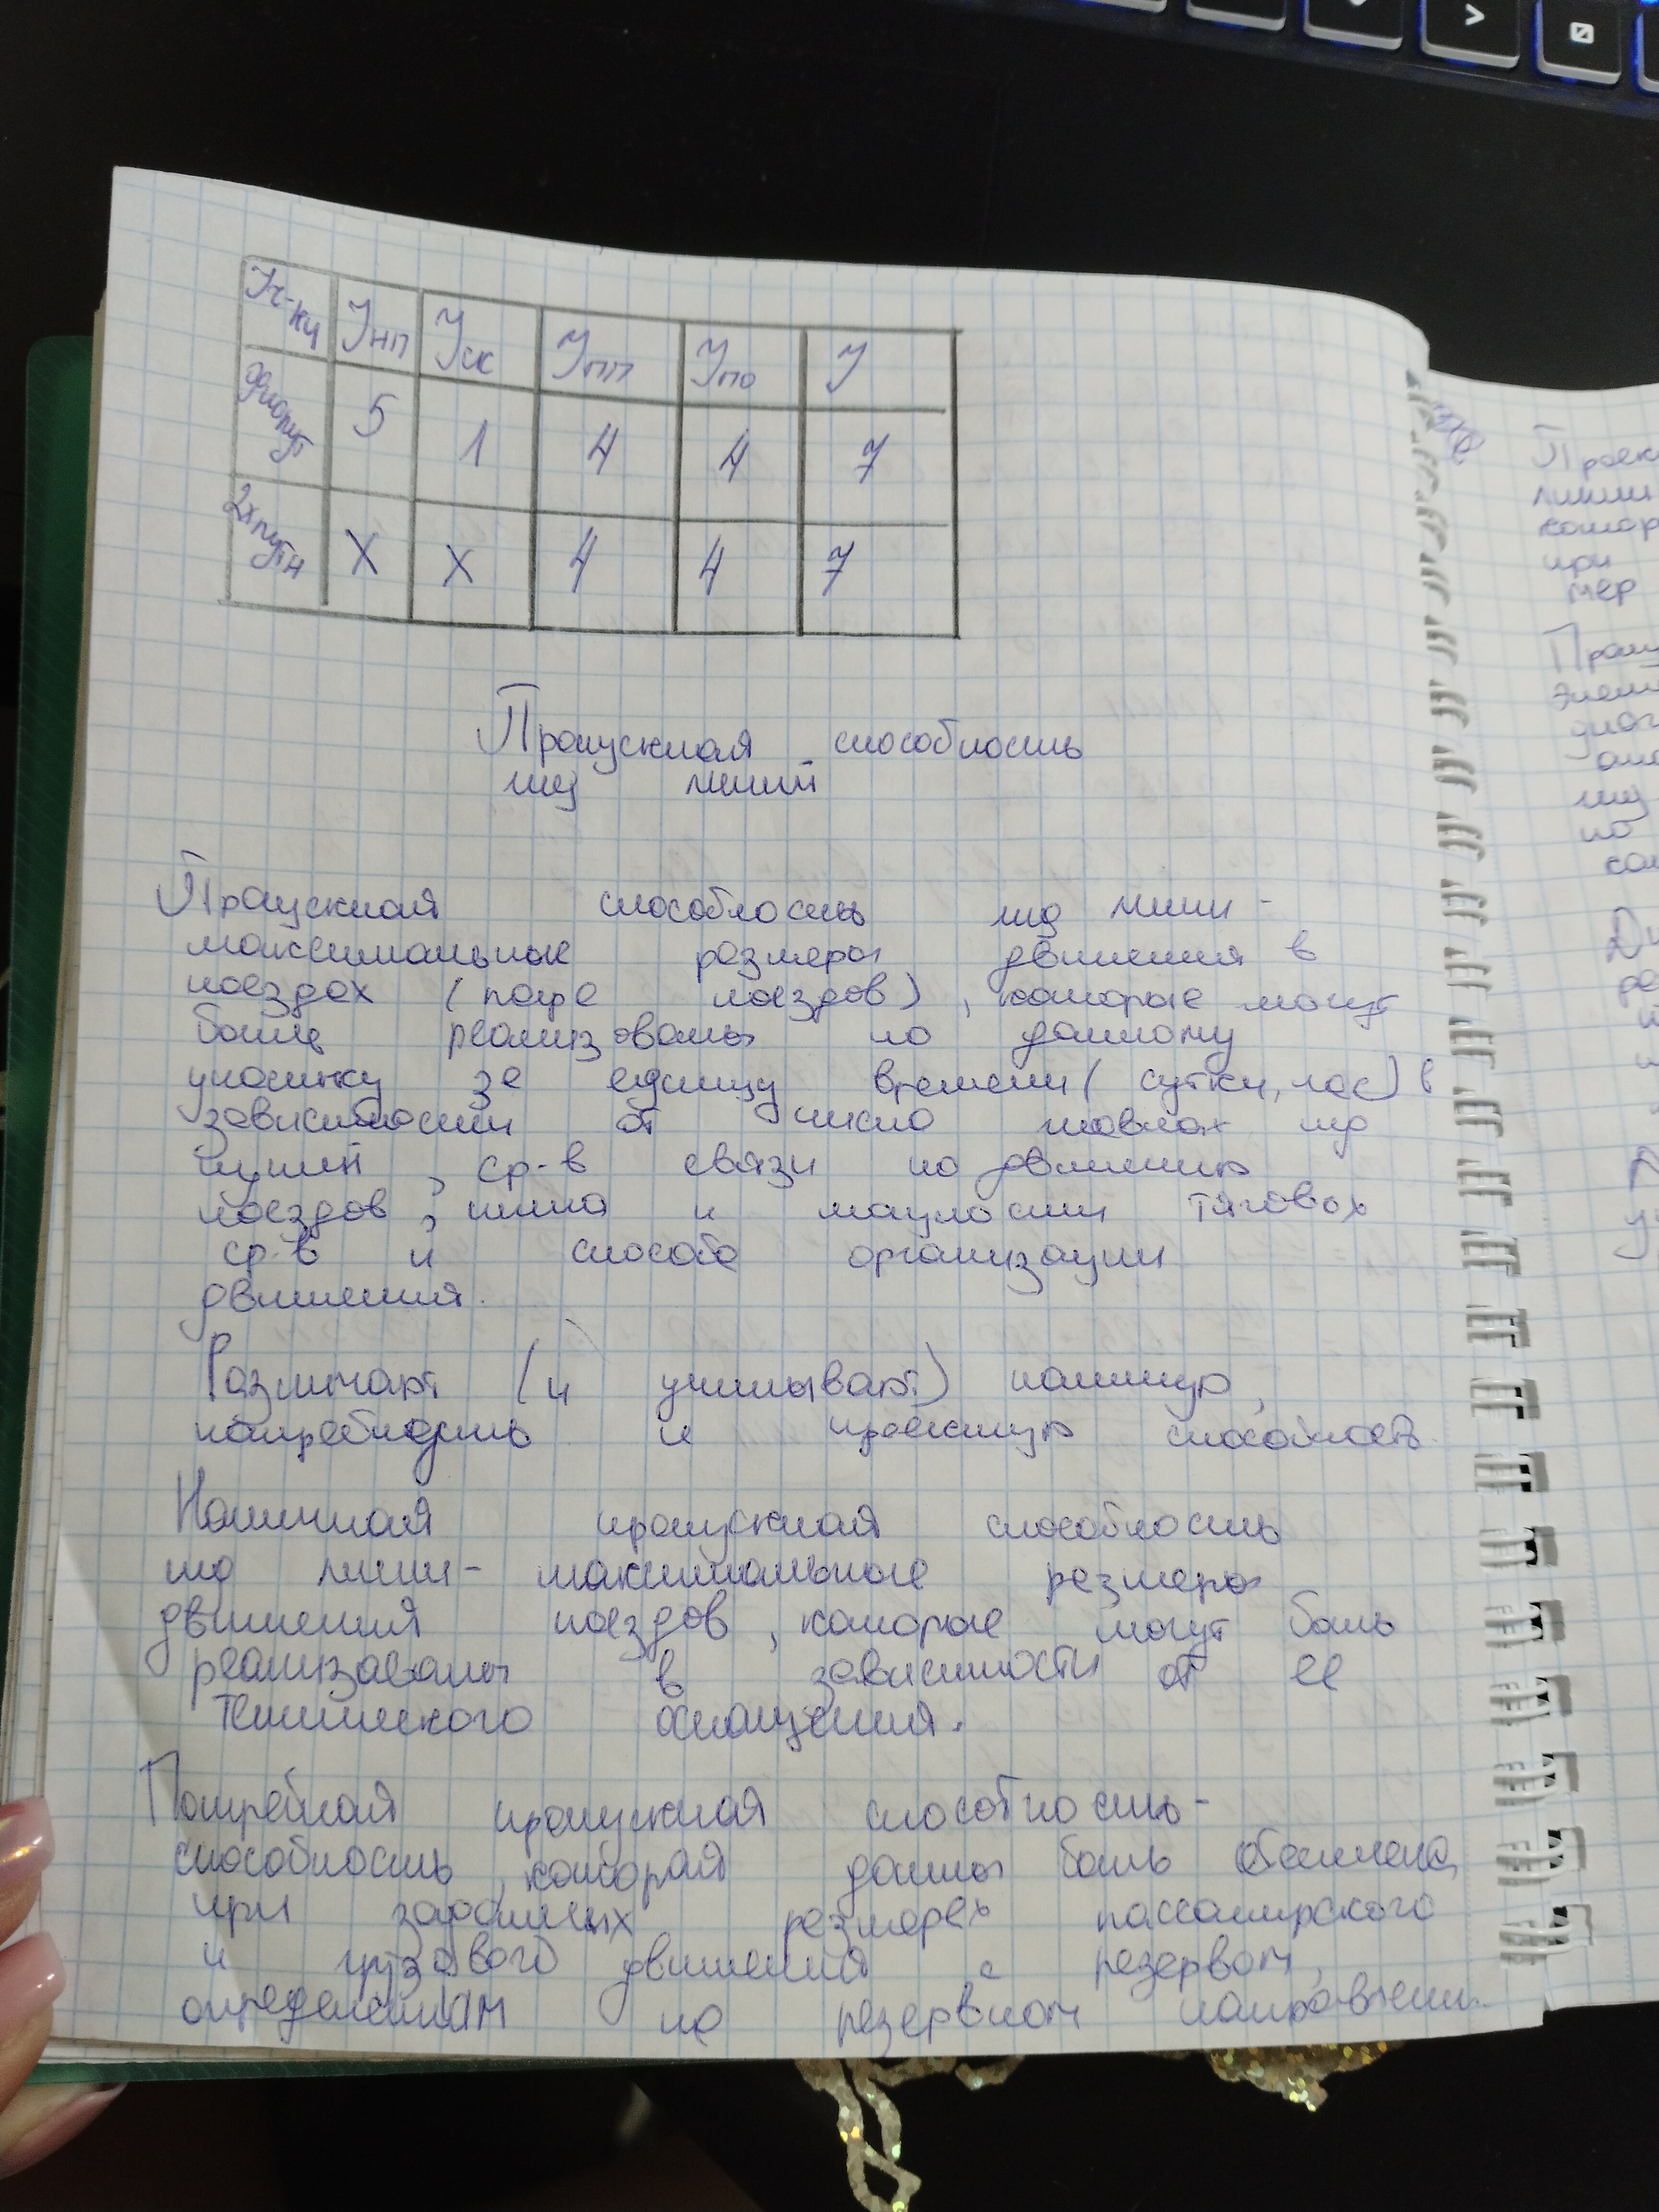 Уч-ки Jнп Jск Jпп Jпо J
однопут 5 1 4 4 7
2хпутн X X 4 4 7
Пропускная способность
жд линий
Пропускная способность жд линии -
максимальные размеры движения в
поездах (паре поездов), которые могут
быть реализованы по данному
участку за единицу времени (сутки, час) в
зависимости от число главных жд
путей, ср-в связи по движению
поездов, типа и мощности тяговых
ср-в и способа организации
движения.
Различают (и учитывают) наличную,
потребность и проектную способность
Наличная пропускная способность
жд линии - максимальные размеры
движения поездов, которые могут быть
реализованы в зависимости от ее
технического оснащения.
Потребная пропускная способность -
способность, которая должны быть обеспечена,
при заданных размерах пассажирского
и грузового движения с резервом,
определенным на резервном направлении.
Проек
линии
котор
при
мер
Проп